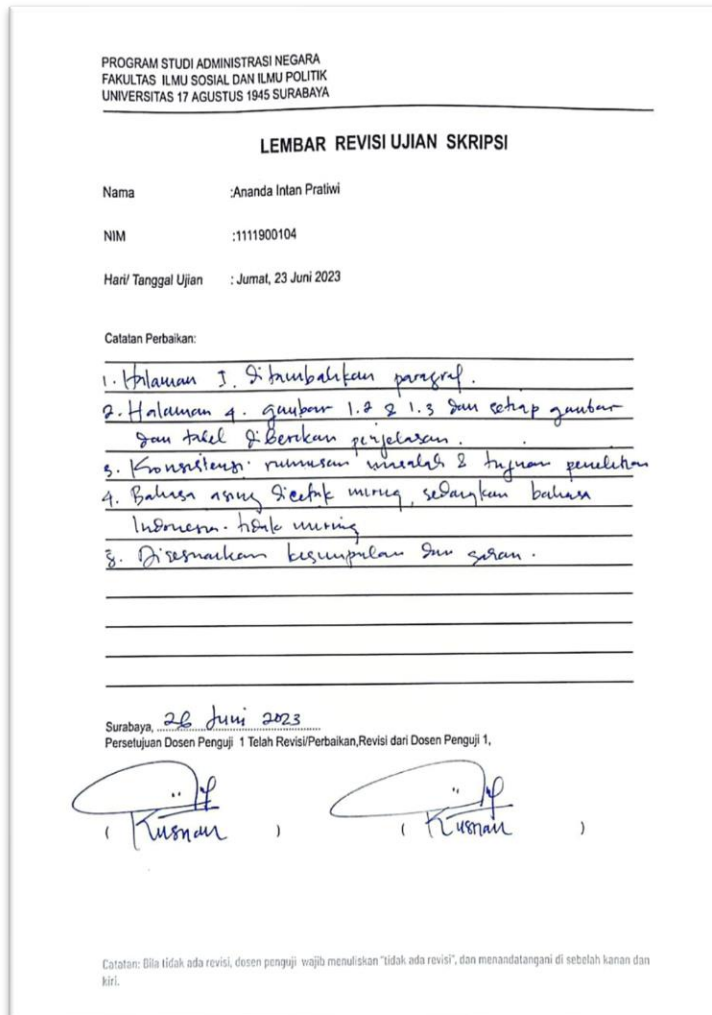 PROGRAM STUDI ADMINISTRASI NEGARA
FAKULTAS ILMU SOSIAL DAN ILMU POLITIK
UNIVERSITAS 17 AGUSTUS 1945 SURABAYA
LEMBAR REVISI UJIAN SKRIPSI
Nama :Ananda Intan Pratiwi
NIM :1111900104
Hari/ Tanggal Ujian : Jumat, 23 Juni 2023
Catatan Perbaikan:
1. Halaman I. Ditambahkan paragraf.
2. Halaman 4. gambar 1.2 & 1.3 dan setiap gambar
dan tabel diberikan penjelasan.
3. Konsistensi rumusan masalah & tujuan penelitian
4. Bahasa asing dicetak miring, sedangkan bahasa
Indonesia tidak miring
5. Disesuaikan kesimpulan dan saran.
Surabaya, 26 Juni 2023
Persetujuan Dosen Penguji 1 Telah Revisi/Perbaikan,Revisi dari Dosen Penguji 1,
( Kusnan ) ( Kusnan )
Catatan: Bila tidak ada revisi, dosen penguji wajib menuliskan "tidak ada revisi", dan menandatangani di sebelah kanan dan
kiri.